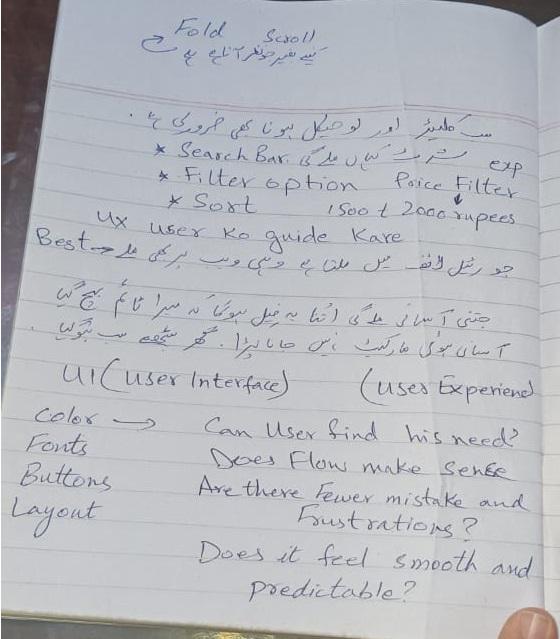 Fold Scroll
کیے بغیر جو نظر آتا ہے
سب کلیئر اور لوجیکل ہونا بھی ضروری ہے.
* Search Bar. شرٹ کہاں ملے گی exp
* Filter option Price Filter
* Sort 1500 t 2000 rupees
Ux user ko guide Kare
Best → جو رئیل لائف میں ملتا ہے وہی ویب پر بھی ملے
جتنی آسانی ملے گی اتنا یہ فیل ہوگا کہ میرا ٹائم بچ گیا
آسانی ہوئی مارکیٹ نہیں جانا پڑا. گھر بیٹھے سب ہوگیا.
UI (User Interface) (User Experiend)
Color → Can User find his need?
Fonts Does Flow make Sense
Buttons Are there Fewer mistake and
Layout Frustrations?
Does it feel smooth and
predictable?